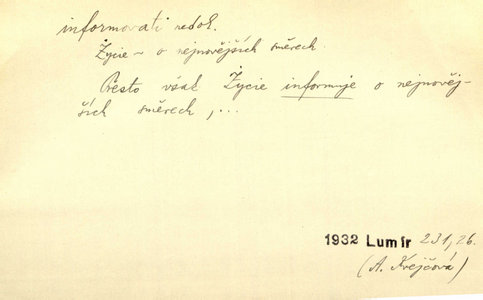 informovati nedok.
Życie ~ o nejnovějších směrech.
Přesto však Życie informuje o nejnověj-
ších směrech, ...
1932 Lumír 231, 26.
(A. Krejčová)